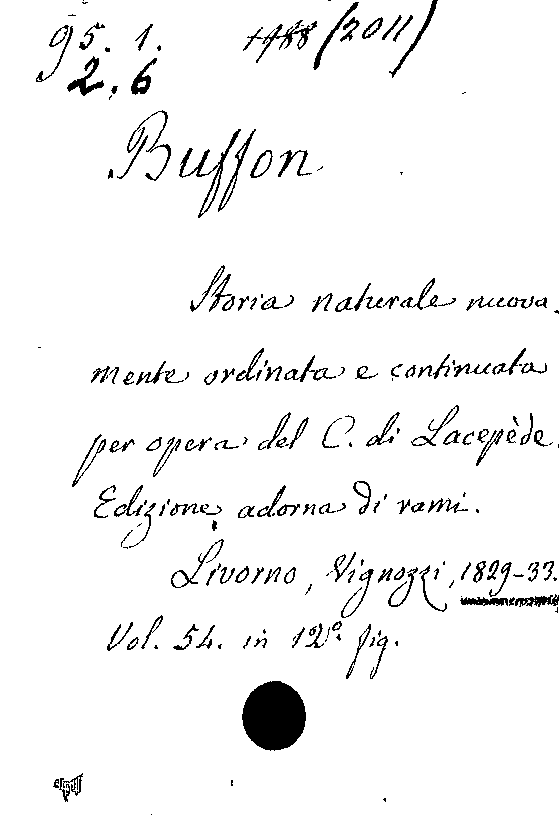 95. 1. 1988 (2011)
2. 6
Buffon
Storia naturale nuova-
mente ordinata e continuata
per opera del C. di Lacepède.
Edizione adorna di rami.
Livorno, Vignozzi, 1829-33.
Vol. 54. in 12º. fig.